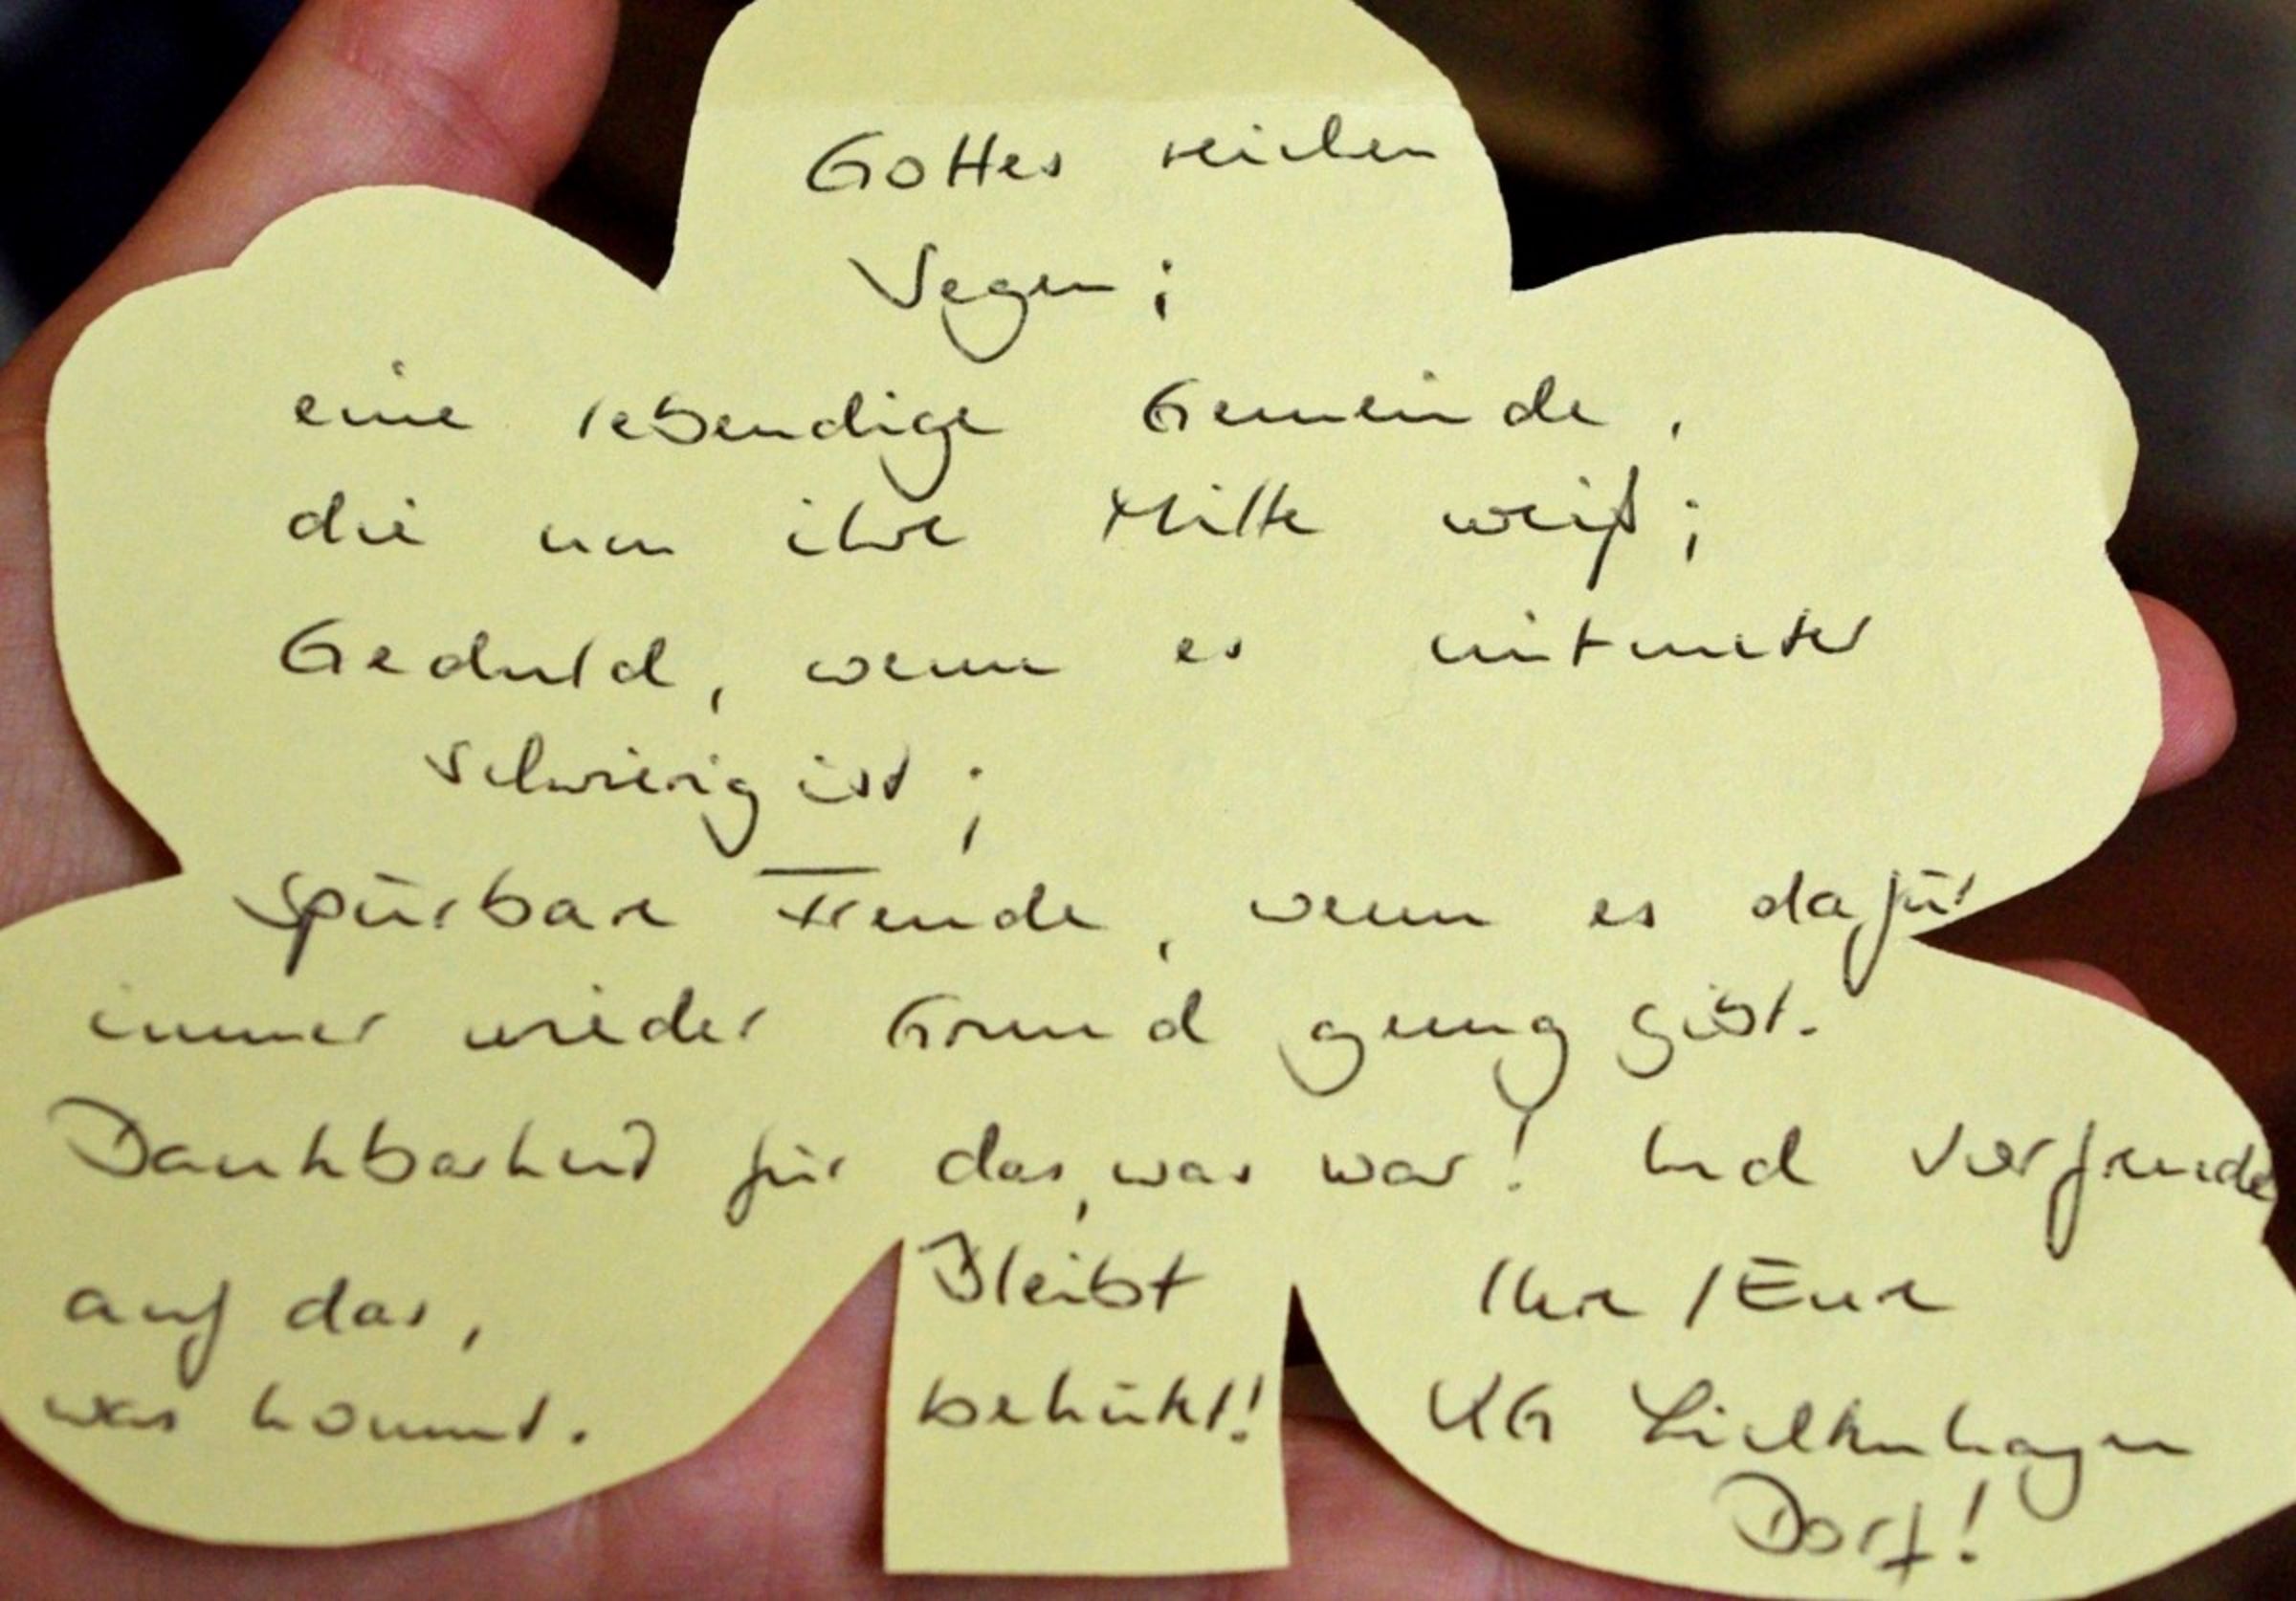 Gottes reichen
Segen;
eine lebendige Gemeinde,
die um ihre Mitte weiß;
Geduld, wenn es mitunter
schwierig ist;
spürbare Freude, wenn es dafür
immer wieder Grund genug gibt.
Dankbarkeit für das, was war! Und Vorfreude
auf das,
was kommt.
Bleibt
behütet!
Ihre / Eure
KG Lichtenhagen
Dorf!